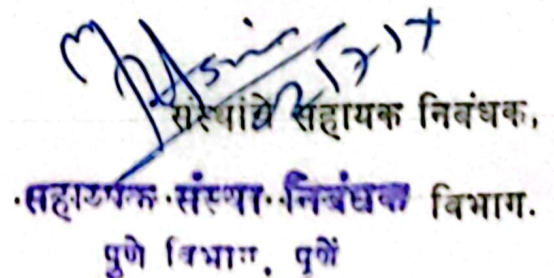 संस्थांचे सहायक निबंधक,
सहाय्यक संस्था निबंधक विभाग.
पुणे विभाग, पुणें